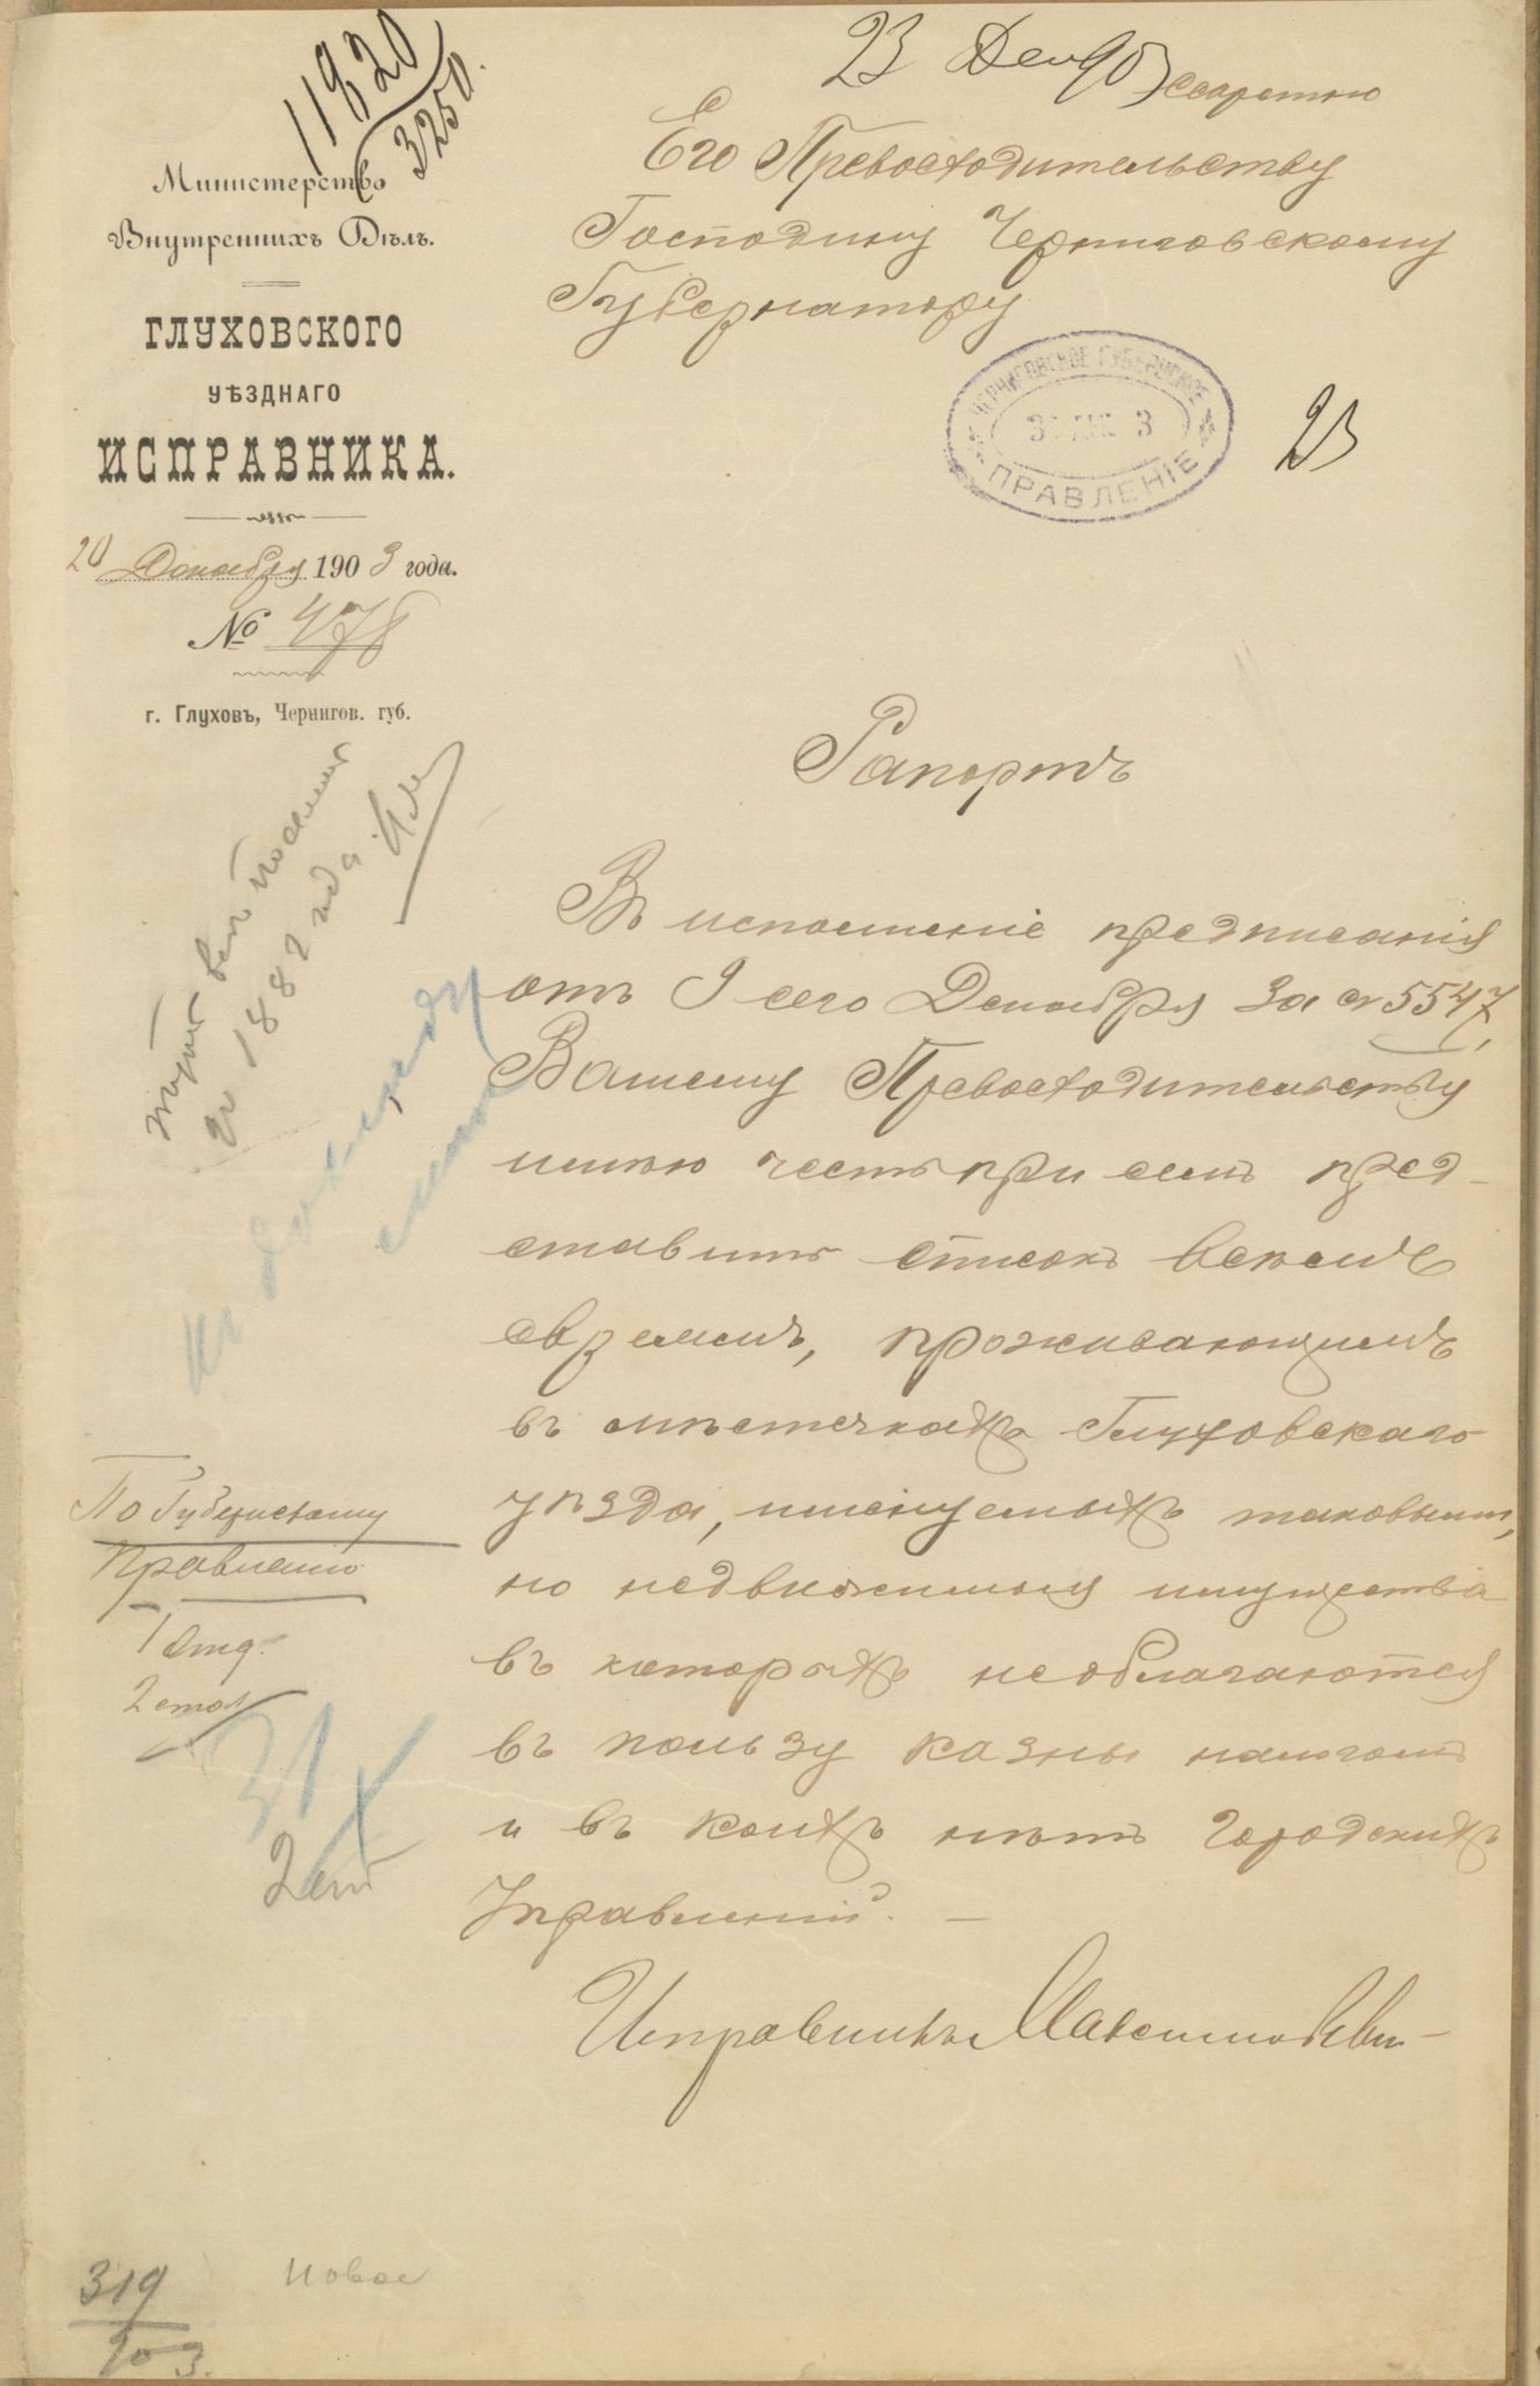 11920
3250.
23 Дек 90
Секретно
Его Превосходительству
Господину Черниговскому
Губернатору
Министерство
Внутреннихъ Дѣлъ.
ГЛУХОВСКОГО
УѢЗДНАГО
ИСПРАВНИКА.
20 Декабря 1903 года.
№ 478
г. Глуховъ, Чернигов. губ.
ЧЕРНИГОВСКОЕ ГУБЕРНСКОЕ
ПРАВЛЕНІЕ
23
Рапортъ
Въ исполненіе предписанія
отъ 9 сего Декабря за № 5547,
Вашему Превосходительству
имѣю честь при семъ пред-
ставить списокъ всѣмъ
евреямъ, проживающимъ
въ мѣстечкахъ Глуховскаго
уѣзда, именуемыхъ таковыми,
но недвижимыя имущества
въ которыхъ необлагаются
въ пользу казны налогомъ
и въ коихъ нѣтъ Городскихъ
Управленій. —
Исправникъ Максимович
1882 года
По Губернскому
Правленію
1 отд.
2 стол
31
2 ст
319
903.
Новое